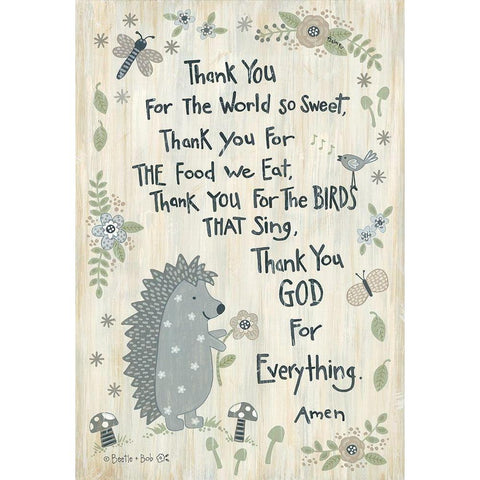 Thank You
For The World so Sweet,
Thank you For
THE Food We Eat,
Thank You For The BIRDS
THAT Sing,
Thank You
GOD
For
Everything.
Amen
© Beetle + Bob